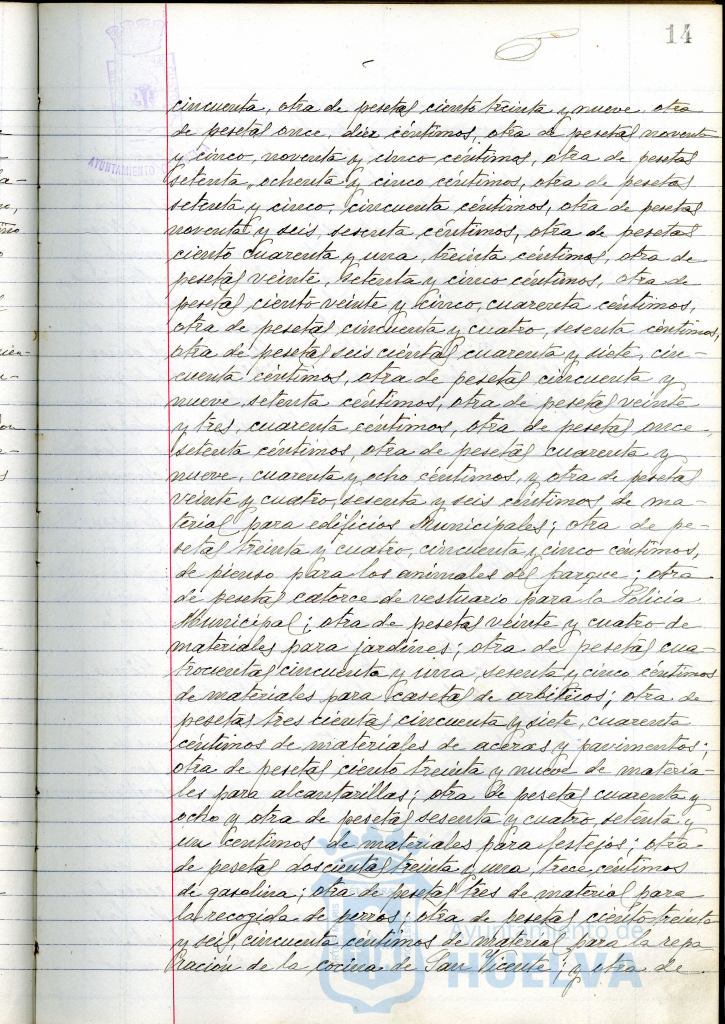 14
AYUNTAMIENTO
cincuenta, otra de pesetas ciento treinta y nueve, otra
de pesetas once, diez céntimos, otra de pesetas noventa
y cinco, noventa y cinco céntimos, otra de pesetas
setenta, ochenta y cinco céntimos, otra de pesetas
setenta y cinco, cincuenta céntimos, otra de pesetas
noventa y seis, sesenta céntimos, otra de pesetas
ciento cuarenta y una, treinta céntimos, otra de
pesetas veinte, setenta y cinco céntimos, otra de
pesetas ciento veinte y cinco, cuarenta céntimos,
otra de pesetas cincuenta y cuatro, sesenta céntimos,
otra de pesetas seiscientas cuarenta y siete, cin-
cuenta céntimos, otra de pesetas cincuenta y
nueve, setenta céntimos, otra de pesetas veinte
y tres, cuarenta céntimos, otra de pesetas once,
setenta céntimos, otra de pesetas cuarenta y
nueve, cuarenta y ocho céntimos, y otra de pesetas
veinte y cuatro, sesenta y seis céntimos de ma-
terial para edificios Municipales; otra de pe-
setas treinta y cuatro, cincuenta y cinco céntimos,
de pienso para los animales del parque; otra
de pesetas catorce de vestuario para la Policía
Municipal; otra de pesetas veinte y cuatro de
materiales para jardines; otra de pesetas cua-
trocientas cincuenta y una, sesenta y cinco céntimos
de materiales para casetas de arbitrios; otra de
pesetas trescientas cincuenta y siete, cuarenta
céntimos de materiales de aceras y pavimentos;
otra de pesetas ciento treinta y nueve de materia-
les para alcantarillas; otra de pesetas cuarenta y
ocho y otra de pesetas sesenta y cuatro, setenta y
un céntimos de materiales para festejos; otra
de pesetas doscientas treinta y una, trece céntimos
de gasolina; otra de pesetas tres de material para
la recogida de perros; otra de pesetas ciento treinta
y seis, cincuenta céntimos de material para la repa-
ración de la cocina de San Vicente; y otra de
Ayuntamiento de
HUELVA